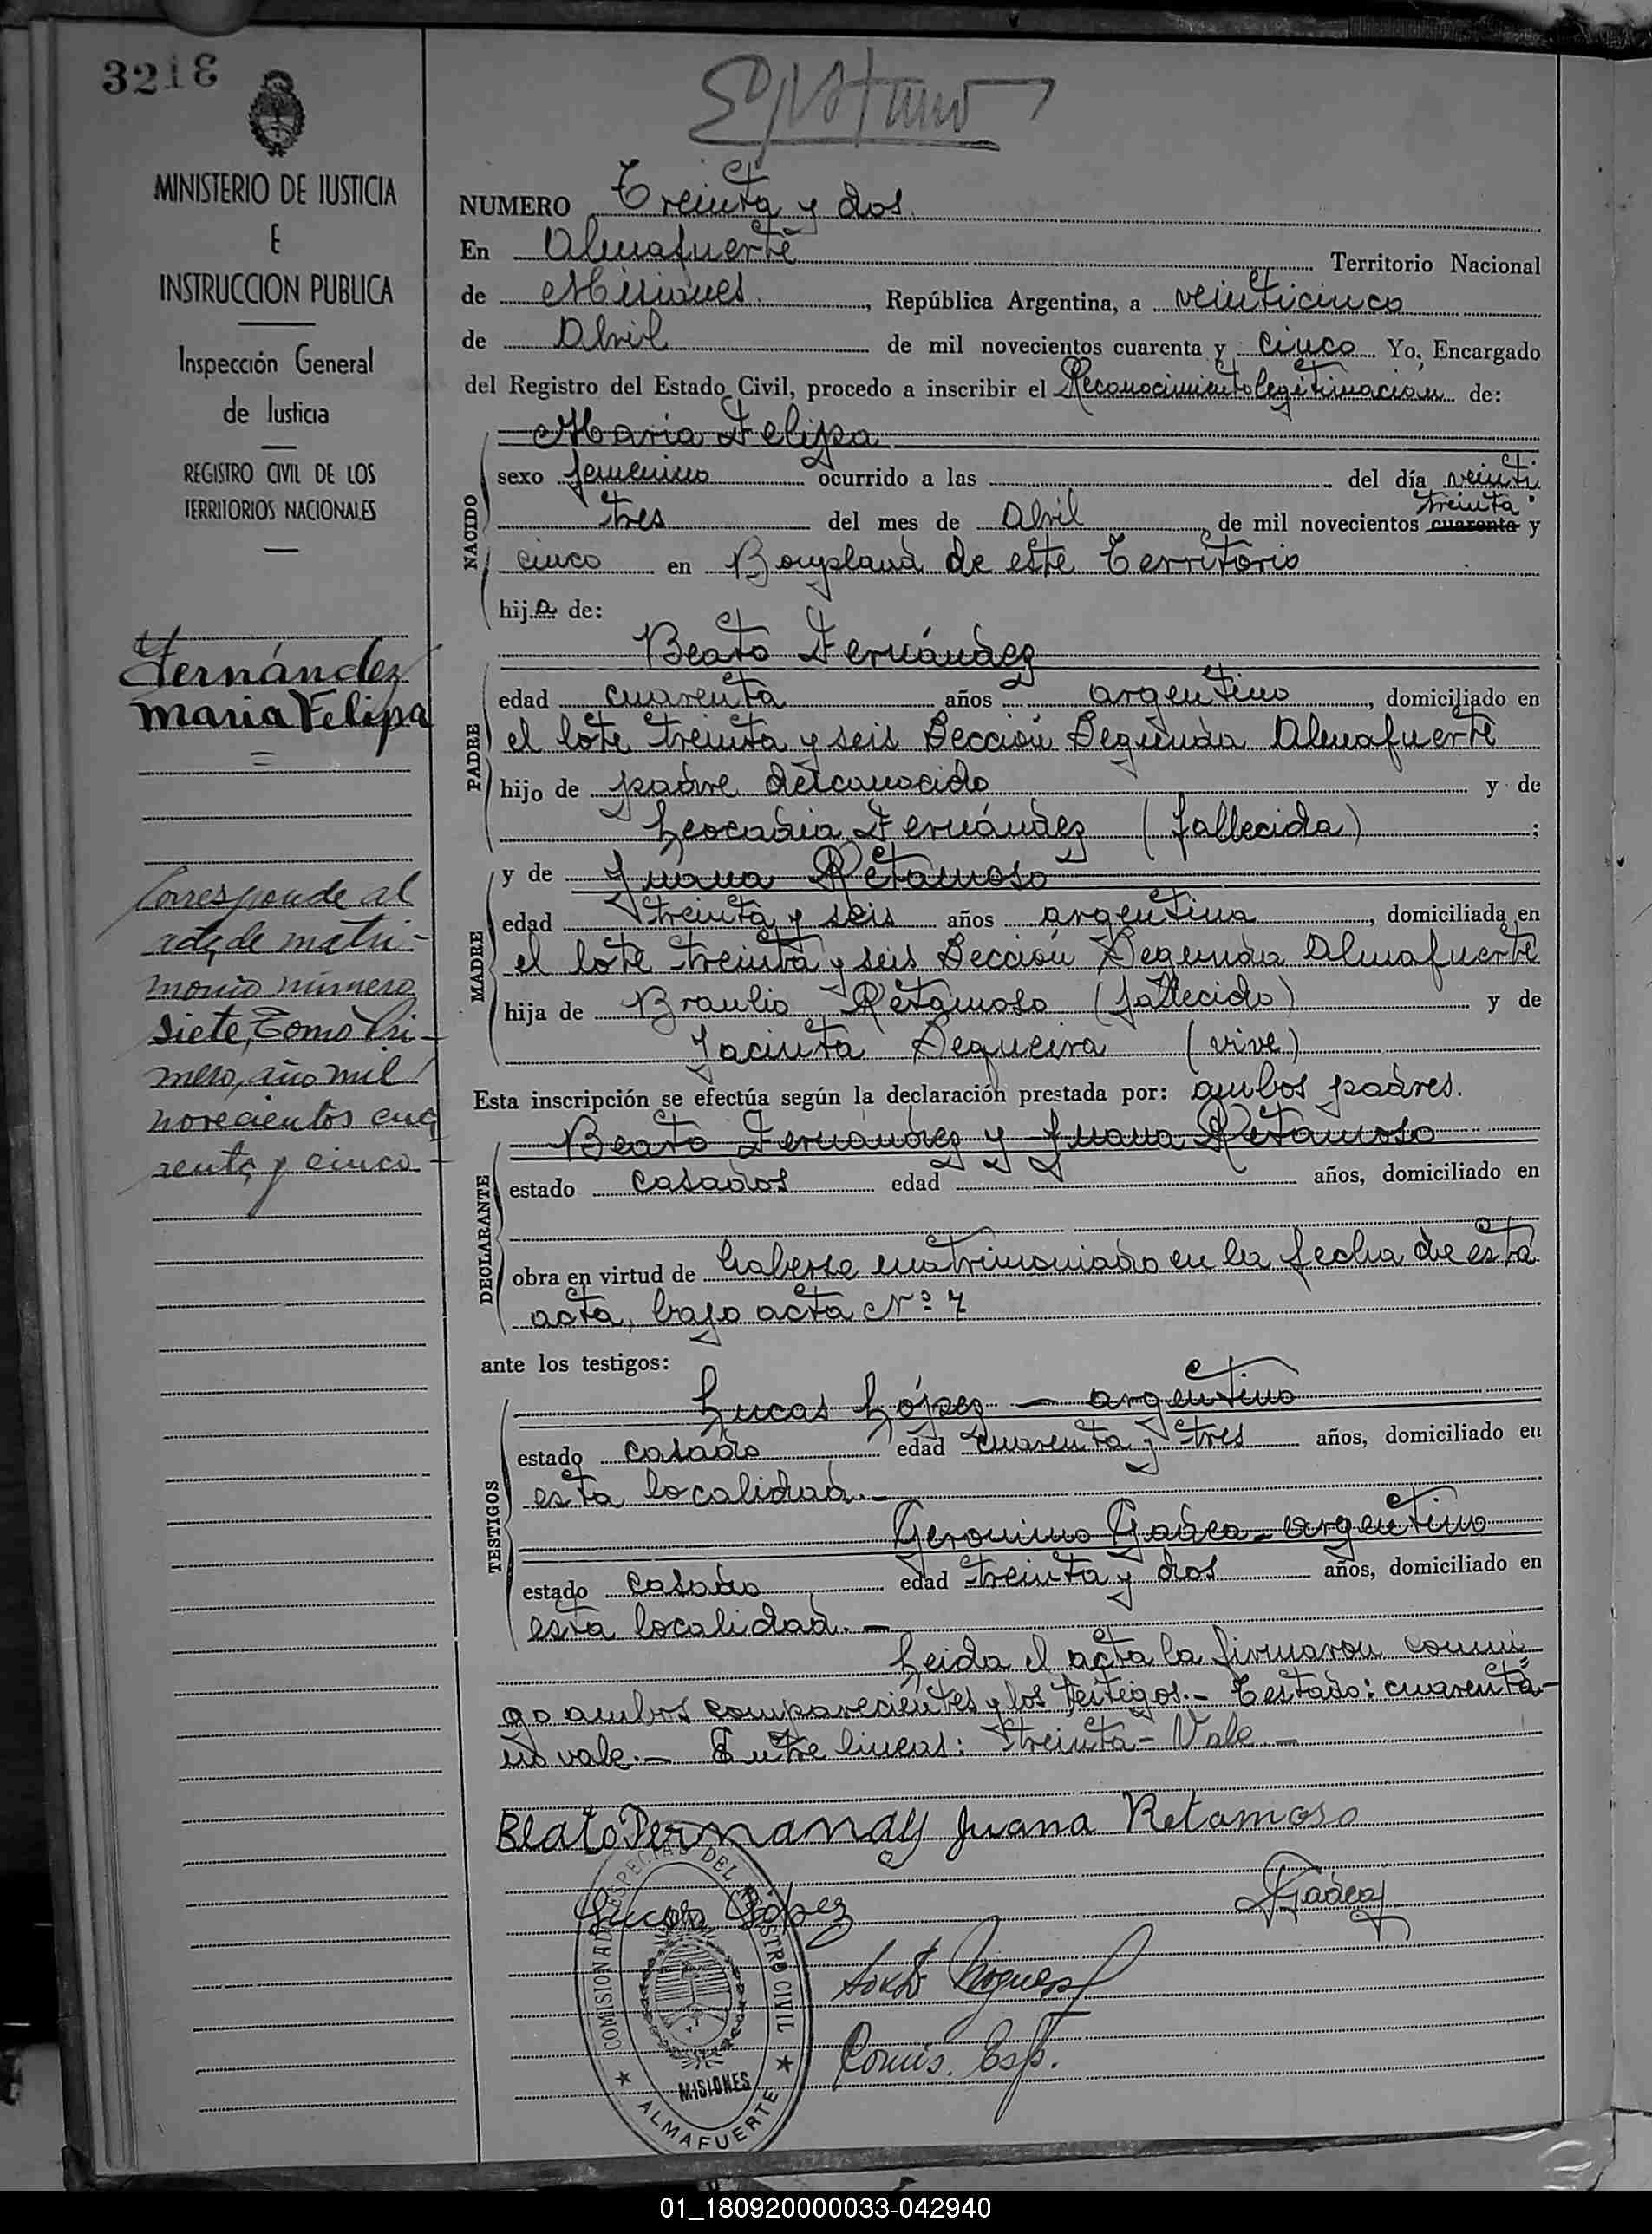 3218
MINISTERIO DE JUSTICIA
E
INSTRUCCION PUBLICA
Inspección General
de Justicia
REGISTRO CIVIL DE LOS
TERRITORIOS NACIONALES
Fernández
Maria Felipa
Corresponde al
acta de matri-
monio número
siete, Tomo Pri-
mero, año mil
novecientos cua
renta y cinco
NUMERO Treinta y dos
En Almafuerte Territorio Nacional
de Misiones, República Argentina, a veinticinco
de Abril de mil novecientos cuarenta y cinco Yo, Encargado
del Registro del Estado Civil, procedo a inscribir el Reconocimiento legitimacion de:
Maria Felipa
NACIDO
sexo femenino ocurrido a las del día veinti
treinta
tres del mes de Abril, de mil novecientos cuarenta y
cinco en Bonpland de este Territorio
hija de:
Beato Fernández
PADRE
edad cuarenta años argentino, domiciliado en
el lote treinta y seis Sección Segunda Almafuerte
hijo de padre desconocido y de
Leocadia Fernández (fallecida);
y de Juana Retamoso
MADRE
edad treinta y seis años argentina, domiciliada en
el lote treinta y seis Sección Segunda Almafuerte
hija de Braulio Retamoso (fallecido) y de
Jacinta Sequeira (vive)
Esta inscripción se efectúa según la declaración prestada por: ambos padres.
Beato Fernández y Juana Retamoso
DECLARANTE
estado casados edad años, domiciliado en
obra en virtud de haberse matrimoniado en la fecha de esta
acta, bajo acta Nº 7
ante los testigos:
Lucas López - argentino
TESTIGOS
estado casado edad cuarenta y tres años, domiciliado en
esta localidad.-
Geronimo Gadea - argentino
estado casado edad treinta y dos años, domiciliado en
esta localidad.-
Leida el acta la firmaron conmi
go ambos comparecientes y los testigos.- Testado: cuarenta-
no vale.- Entre lineas: treinta - Vale.-
Beato Fernandez Juana Retamoso
Lucas López
Gadea
Comis. Esp.
COMISIONADO ESPECIAL DEL REGISTRO CIVIL
MISIONES
ALMAFUERTE
01_180920000033-042940